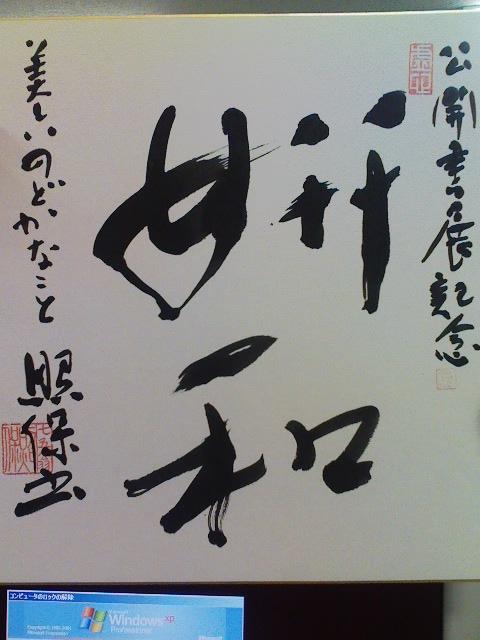 公開書展記念
妍
和
美しいのどかなこと
照保書
コンピュータのロックの解除
Microsoft
Windows xp
Professional
Copyright © 1985-2001
Microsoft Corporation
Microsoft